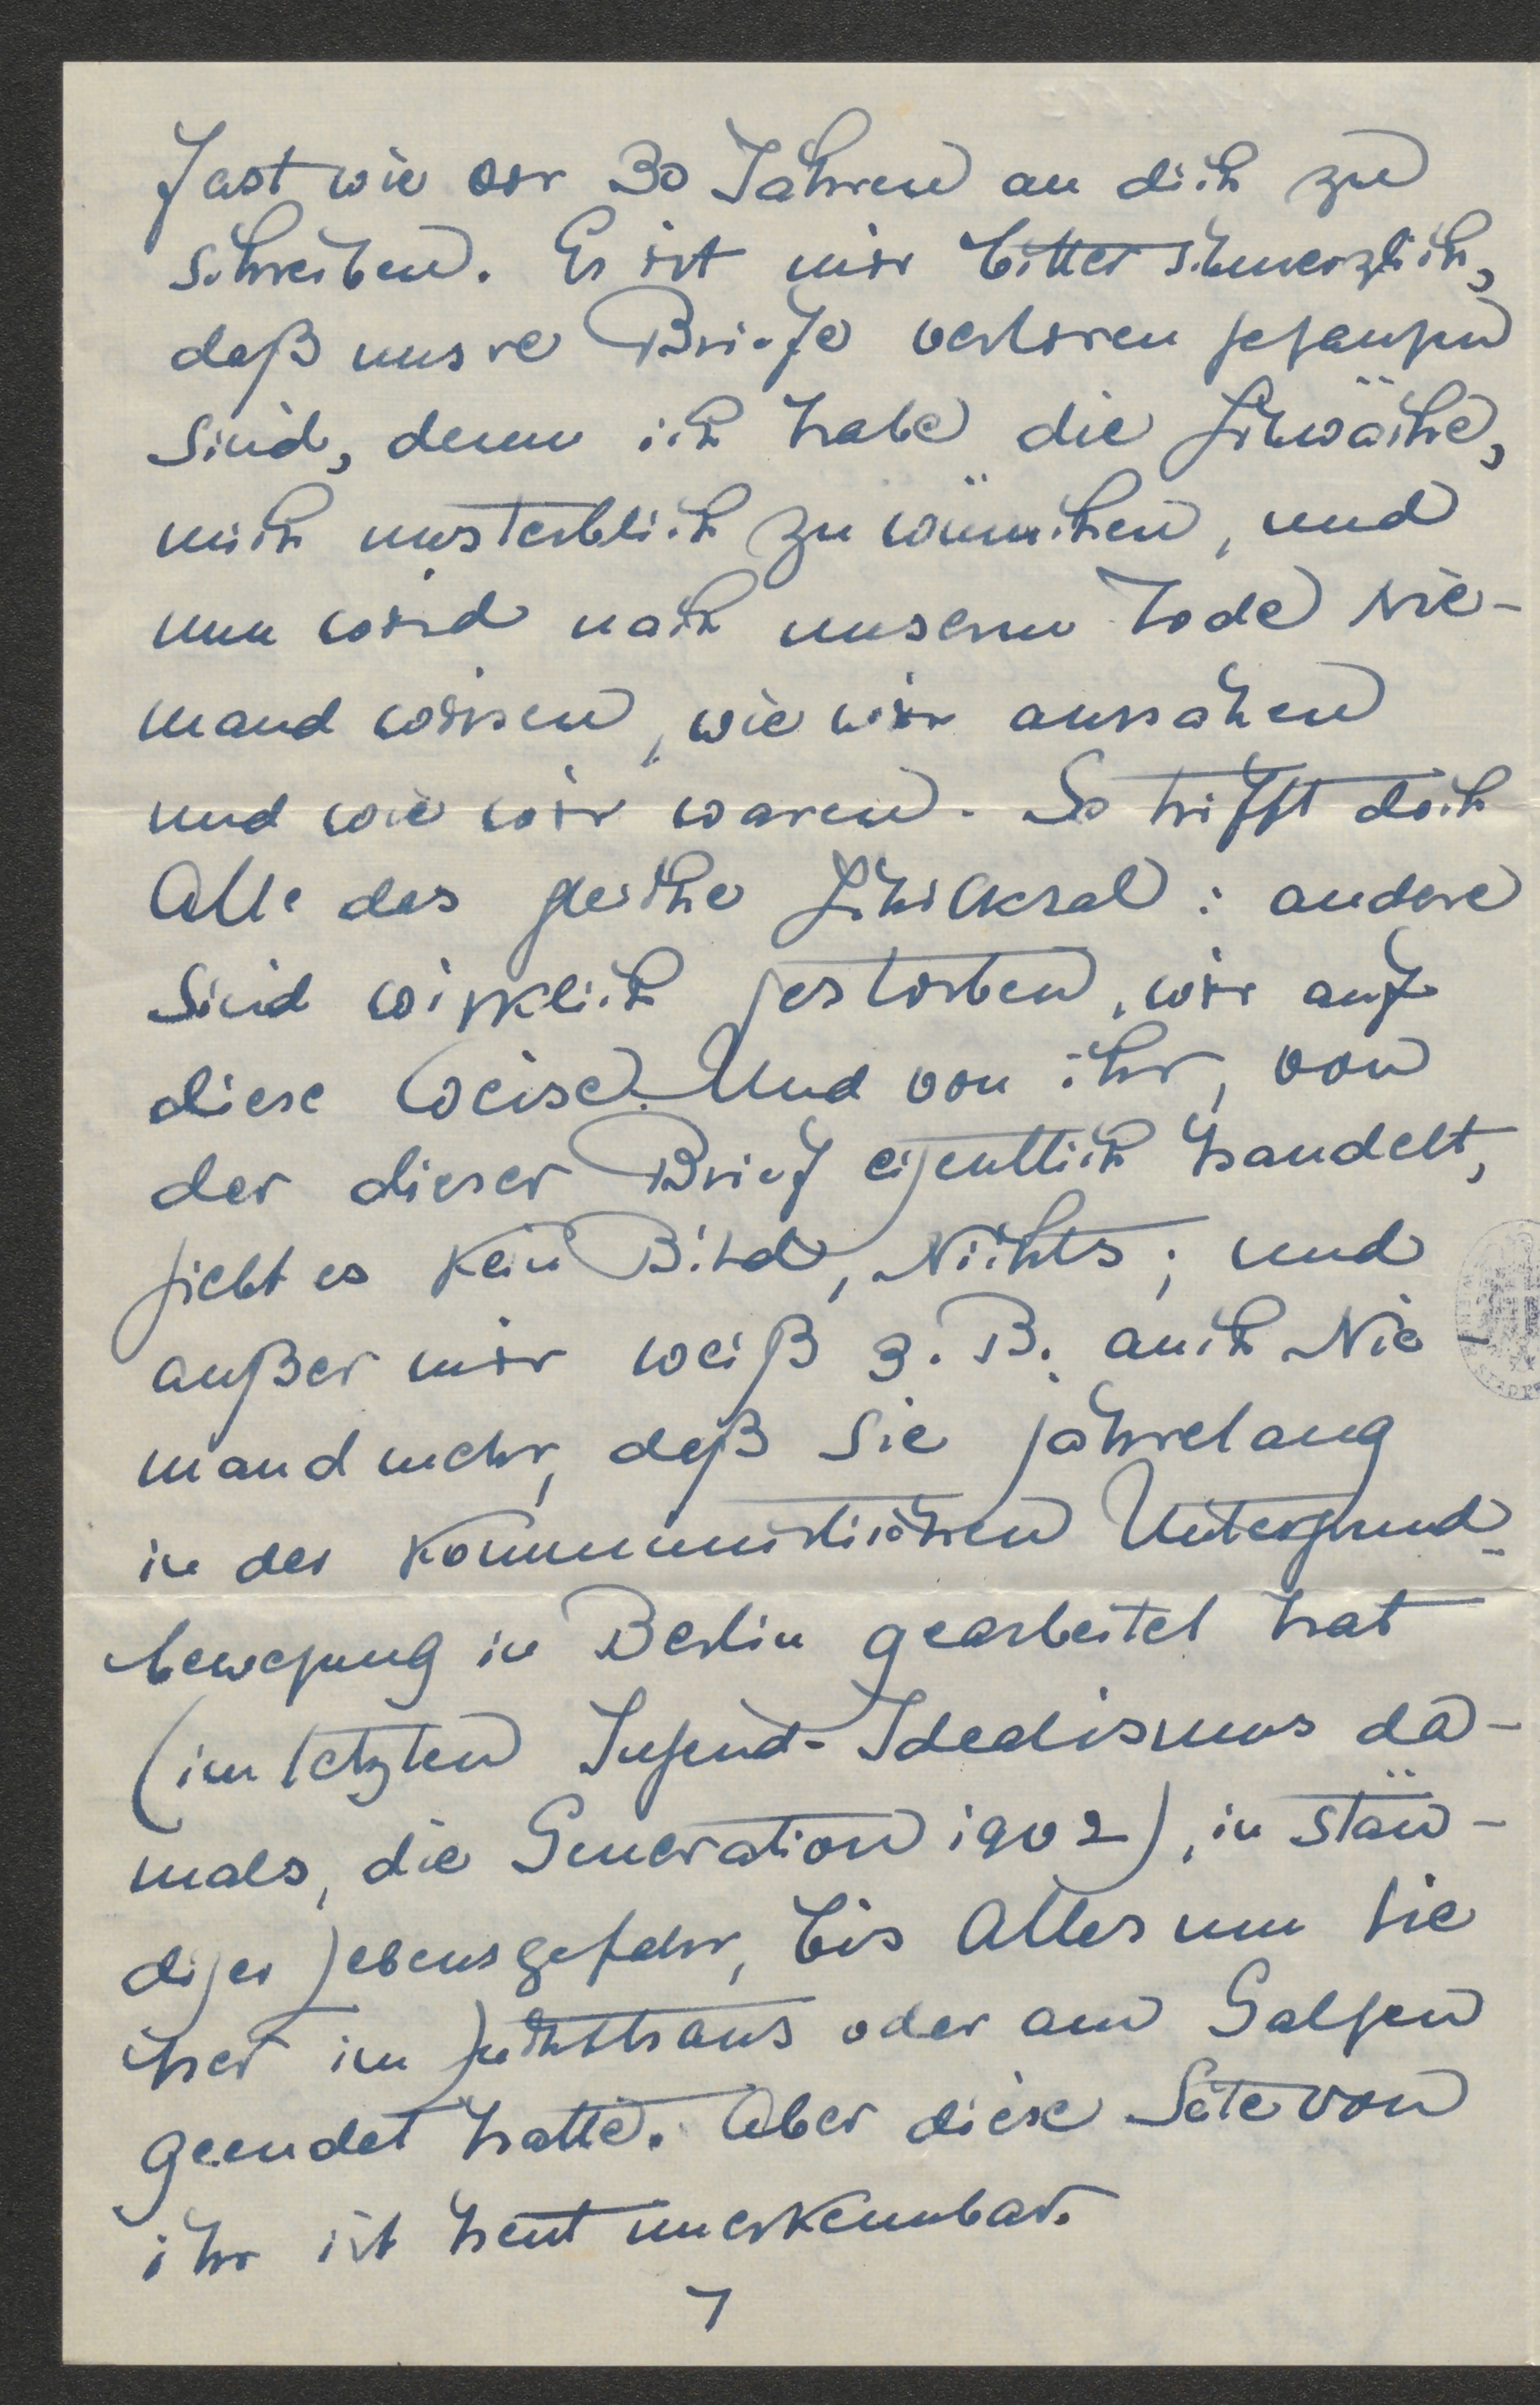 fast wie vor 30 Jahren an dich zu
schreiben. Es ist mir bitter schmerzlich,
daß unsre Briefe verloren gegangen
sind, denn ich habe die Schwäche,
mich unsterblich zu wünschen, und
nun wird nach unserm Tode Nie-
mand wissen, wie wir aussahen
und wie wir waren. So trifft doch
Alle das gleiche Schicksal: andere
sind wirklich gestorben, wir auf
diese Weise. Und von ihr, von
der dieser Brief eigentlich handelt,
giebt es kein Bild, Nichts; und
außer mir weiß z. B. auch Nie-
mand mehr, daß sie jahrelang
in der kommunistischen Untergrund-
bewegung in Berlin gearbeitet hat
(im letzten Jugend-Idealismus da-
mals, die Generation 1902), in stän-
diger Lebensgefahr, bis Alles um sie
her im Zuchthaus oder am Galgen
geendet hatte. Aber diese Seite von
ihr ist heut unerkennbar.
7